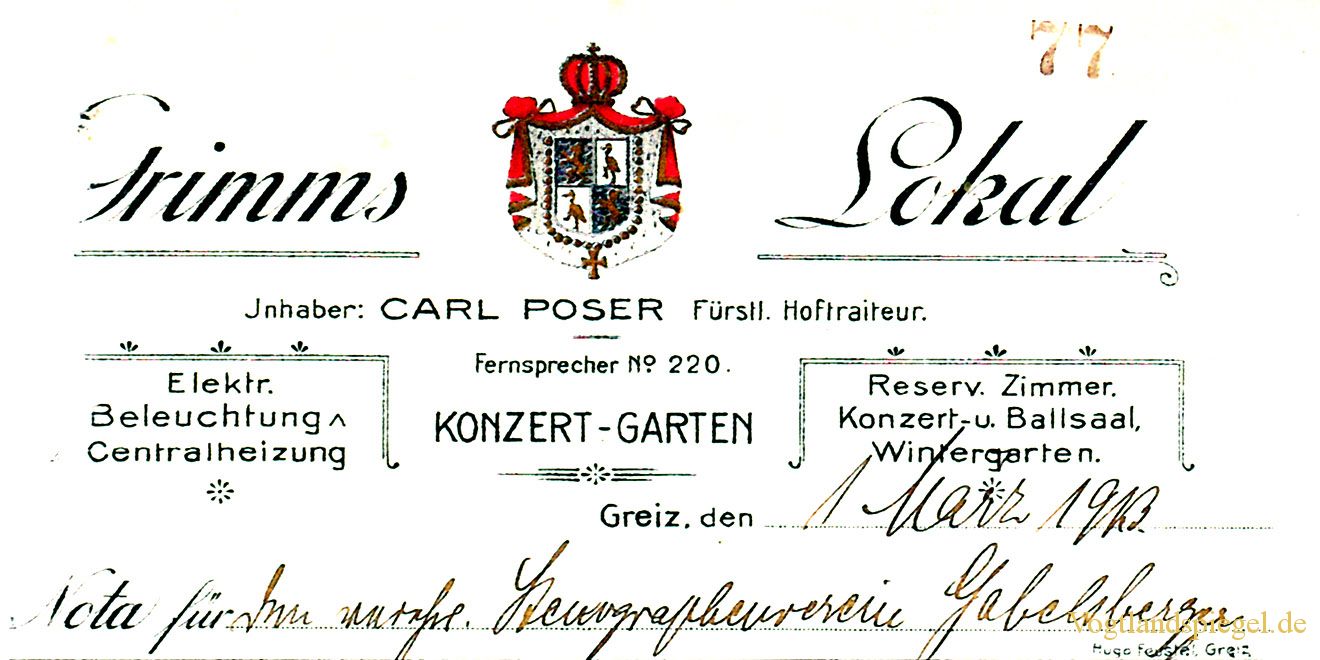 77
Grimms Lokal
Jnhaber: CARL POSER Fürstl. Hoftraiteur.
Fernsprecher No 220.
Elektr.
Beleuchtung
Centralheizung
KONZERT-GARTEN
Reserv. Zimmer.
Konzert- u. Ballsaal,
Wintergarten.
Greiz, den 1 März 1913.
Nota für den verehr. Stenographenverein Gabelsberger
Vogtlandspiegel.de
Hugo Feustel, Greiz